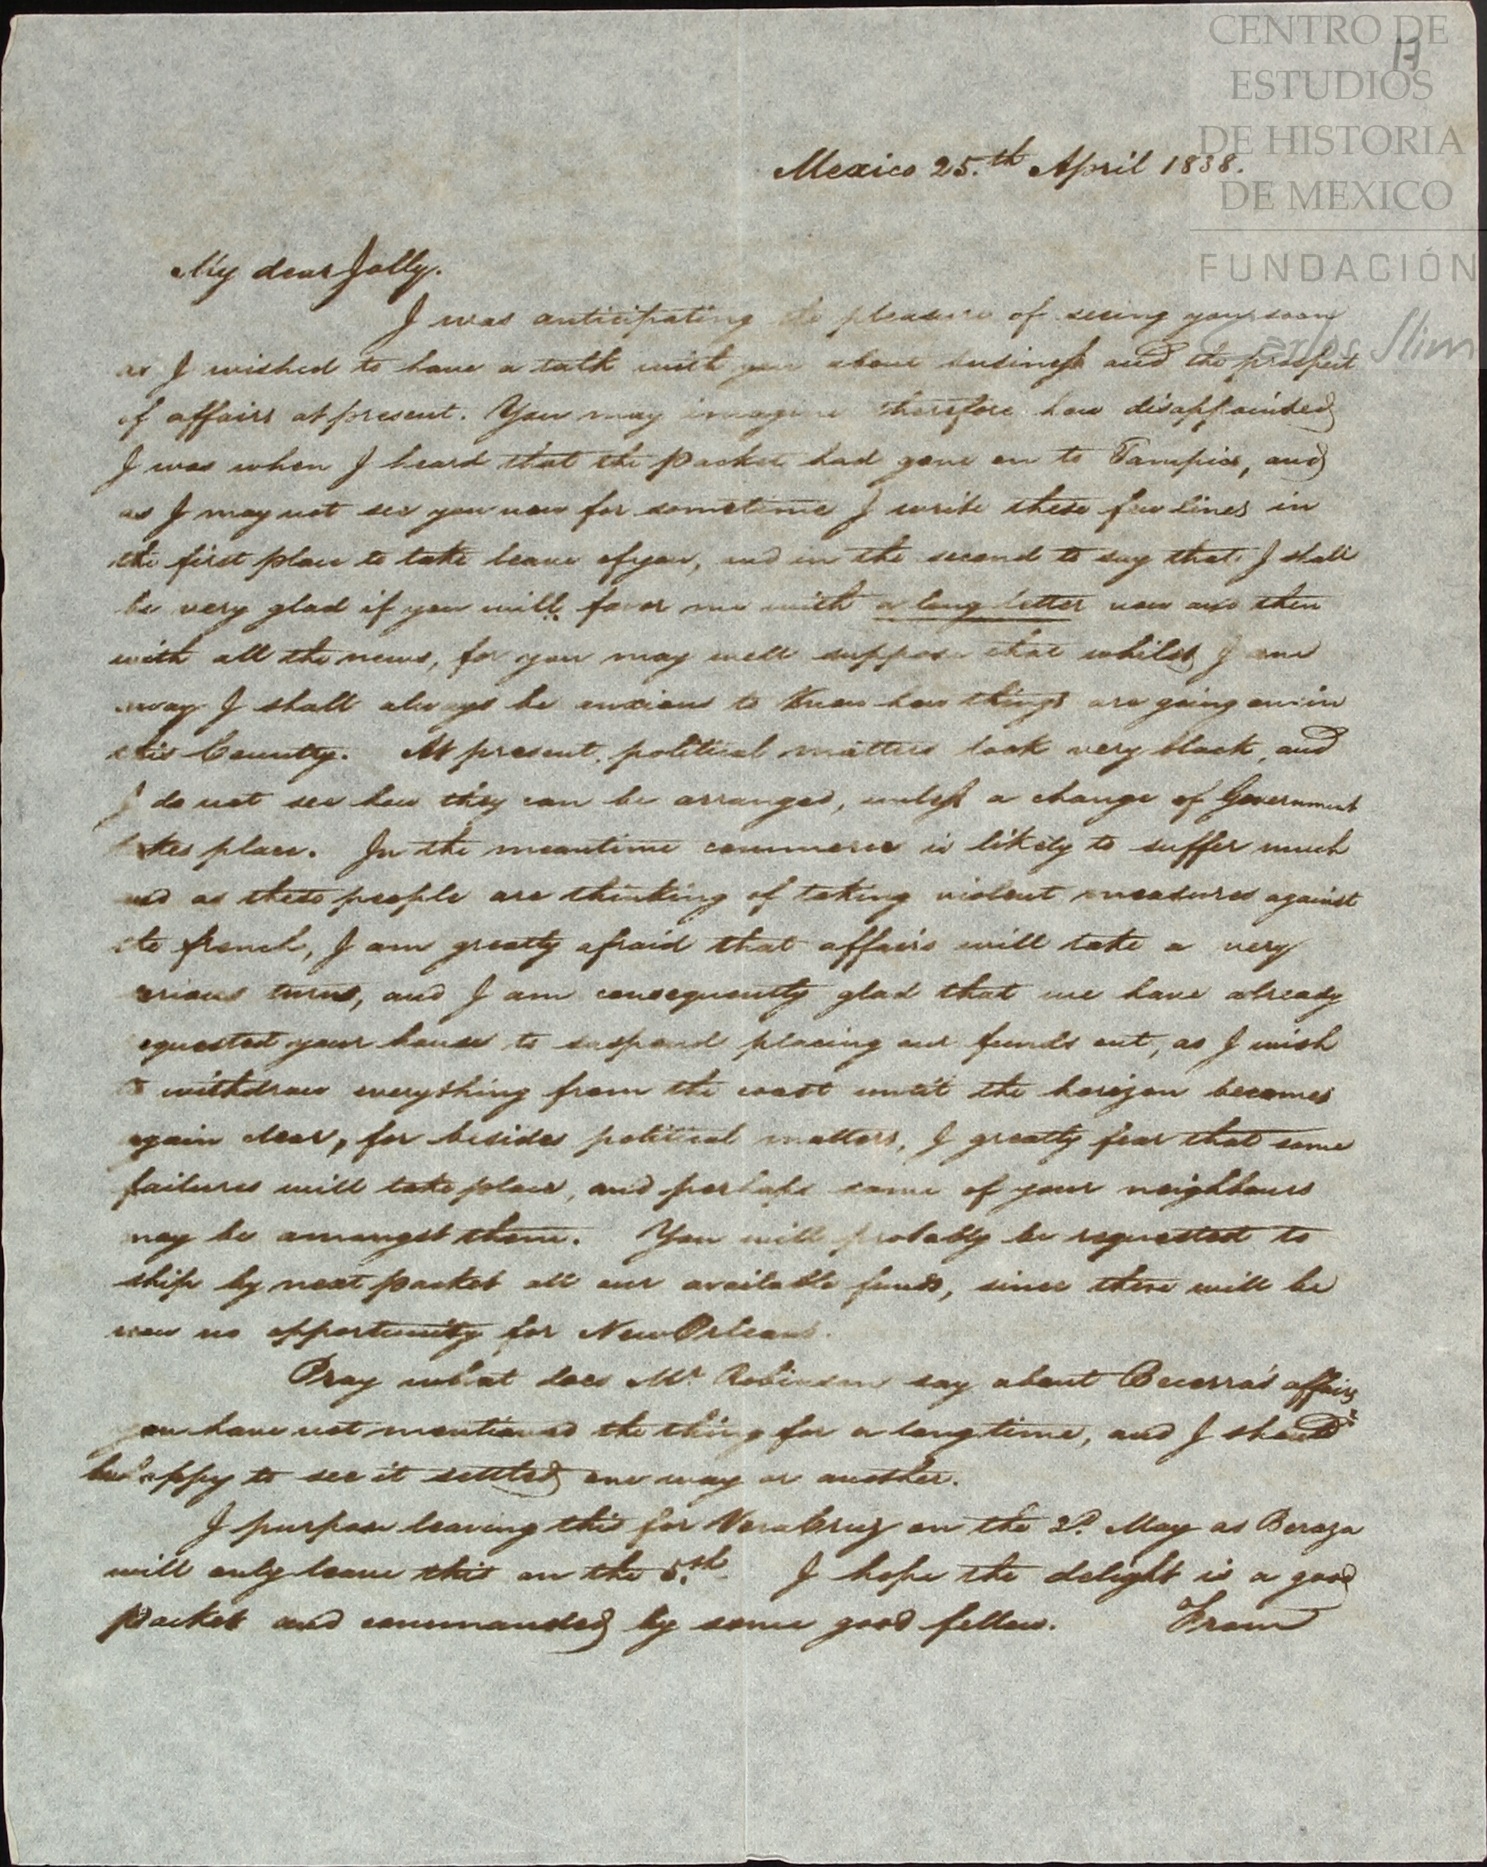 CENTRO DE
ESTUDIOS
DE HISTORIA
DE MEXICO
FUNDACIÓN
Carlos Slim
13
Mexico 25.th April 1838.
My dear Jolly.
I was anticipating the pleasure of seeing you soon
as I wished to have a talk with you about business and the prospect
of affairs at present. You may imagine therefore how disappointed
I was when I heard that the packet had gone on to Tampico, and
as I may not see you now for sometime I write these few lines in
the first place to take leave of you, and in the second to say that I shall
be very glad if you will favor me with a long letter now and then
with all the news, for you may well suppose that whilst I am
away I shall always be anxious to know how things are going on in
this Country. At present political matters look very black, and
I do not see how they can be arranged, unless a change of Government
takes place. In the meantime commerce is likely to suffer much
and as these people are thinking of taking violent measures against
the french, I am greatly afraid that affairs will take a very
serious turn, and I am consequently glad that we have already
requested your house to suspend placing our funds out, as I wish
to withdraw everything from the coast until the horizon becomes
again clear, for besides political matters, I greatly fear that some
failures will take place, and perhaps some of your neighbours
may be amongst them. You will probably be requested to
ship by next packet all our available funds, since there will be
now no opportunity for New Orleans.
Pray what does Mr Robinson say about Becerra's affairs
you have not mentioned the thing for a long time, and I should
be happy to see it settled one way or another.
I purpose leaving this for Vera Cruz on the 2d May as Beraza
will only leave this on the 5.th I hope the delight is a good
packet and commanded by some good fellow. From